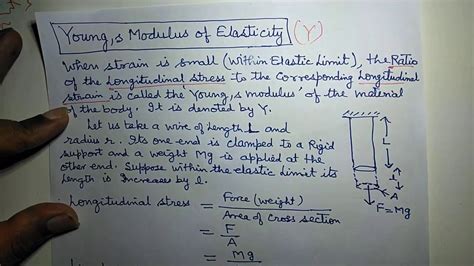 Young,s Modulus of Elasticity (Y)
When strain is small (within Elastic Limit), the Ratio
of the Longitudinal stress to the corresponding Longitudinal
strain is called the Young,s modulus' of the material
of the body. It is denoted by Y.
Let us take a wire of Length L and
radius r. Its one end is clamped to a Rigid
support and a weight Mg is applied at the
other end. Suppose within the elastic limit its
Length is increases by l.
Longitudinal stress = Force (weight)
Area of cross section
= F
A
= Mg
L
l
A
F=Mg